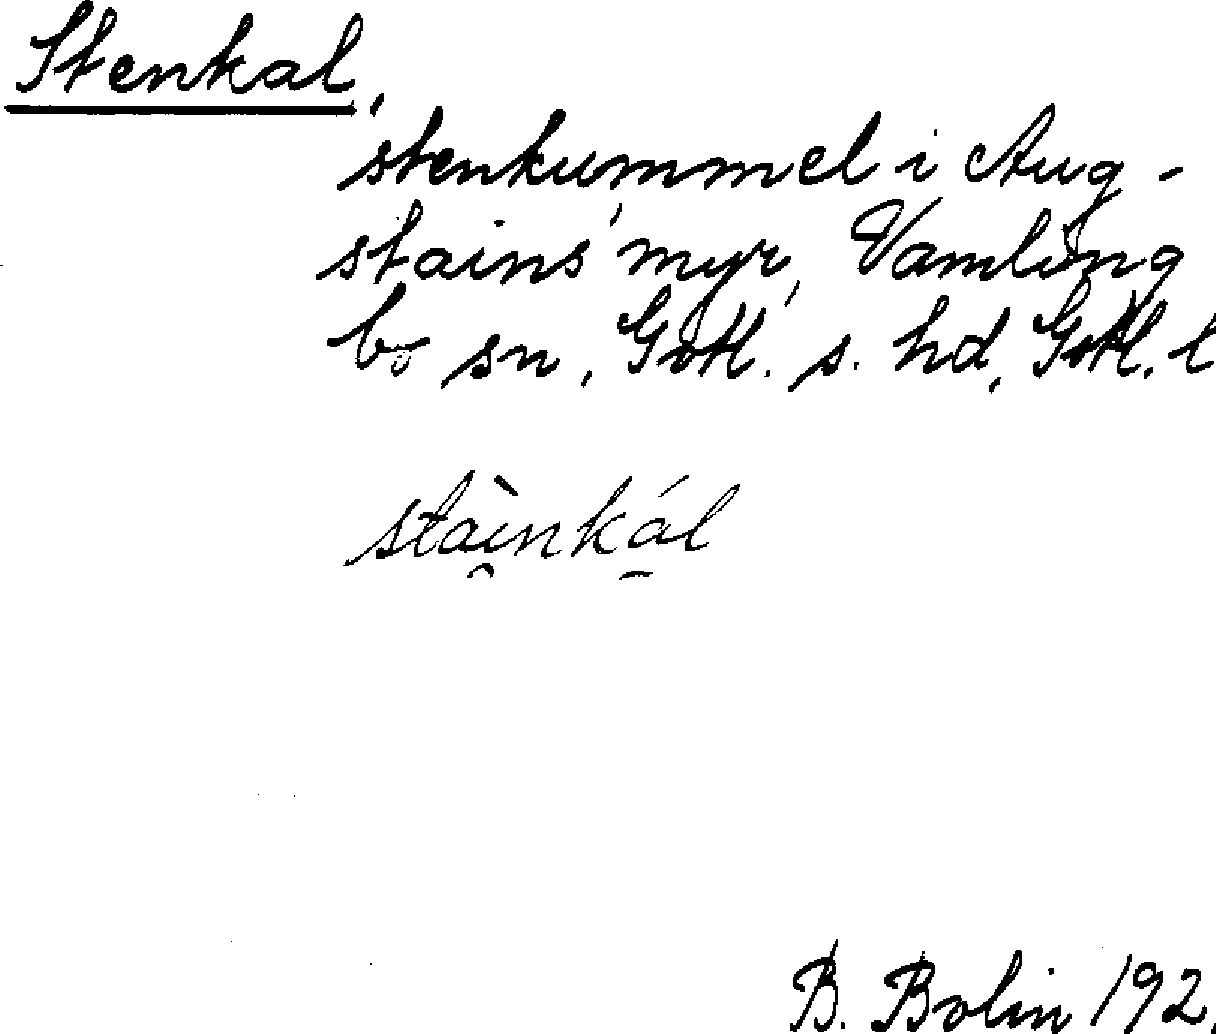 Stenkal,
stenkummel i Aug-
stains' myr, Vamling
bo sn, Gotl. s. hd, Gotl. l
stàinkál
B. Bolin 192